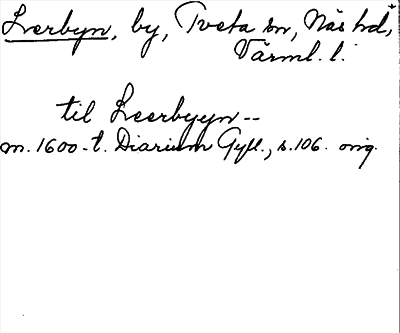 Lerbyn, by, Tveta sn, Näs hd,
Värml. l.
til Leerbyyn --
m. 1600-t. Diarium Gyll., s. 106. orig.